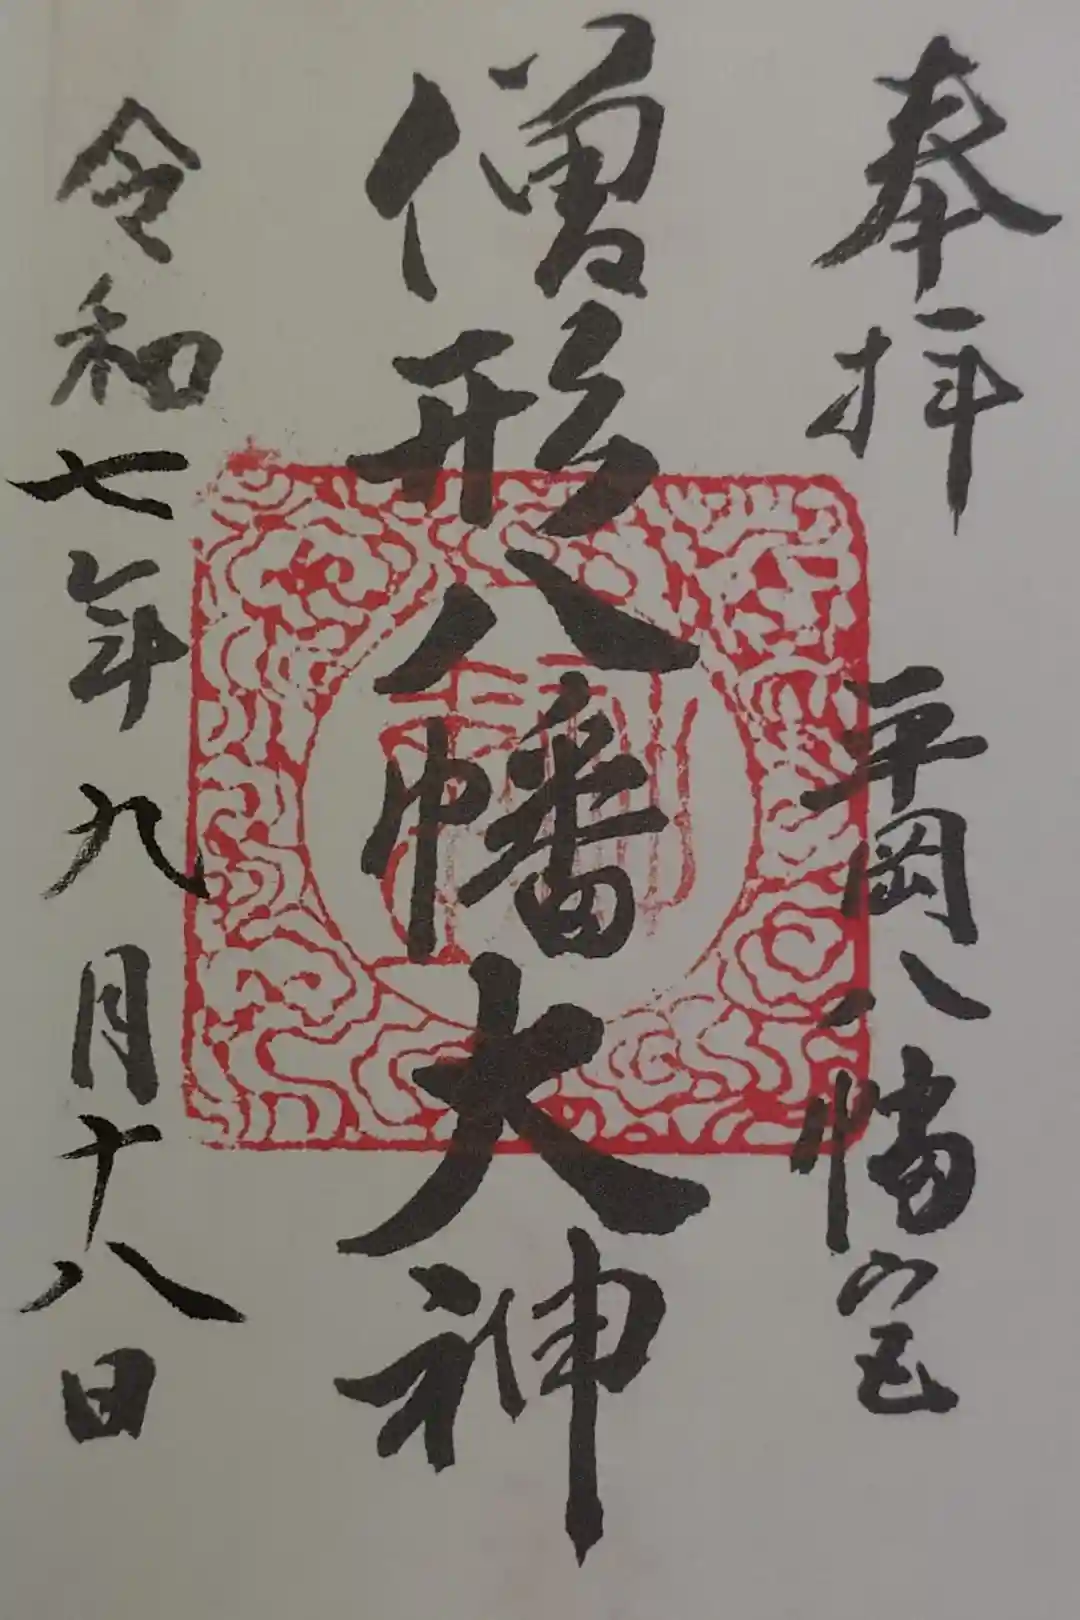 奉拝 平岡八幡宮
僧形八幡大神
令和七年九月十八日